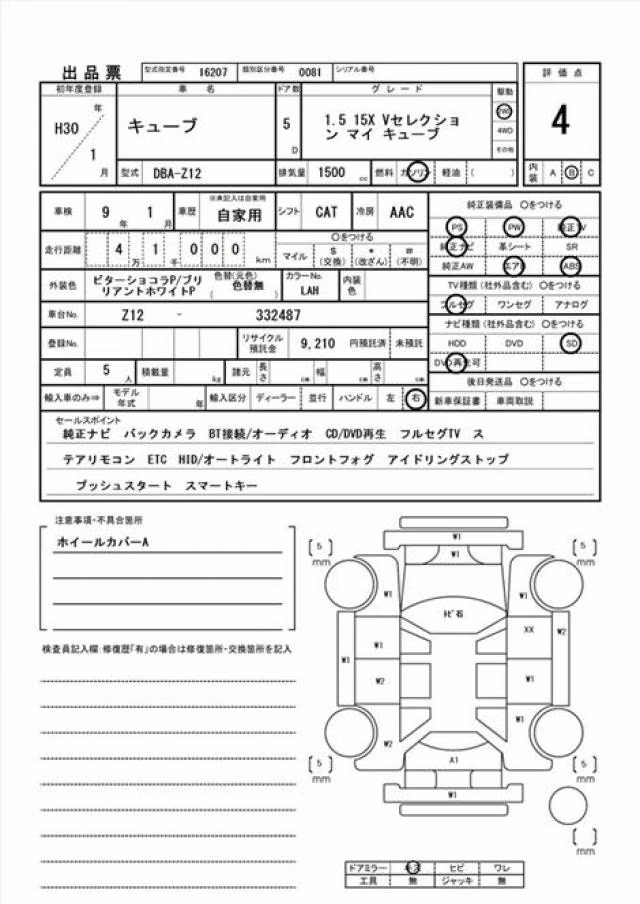 出品票 型式指定番号 16207 類別区分番号 0081 シリアル番号
初年度登録 車 名 ドア数 グレード 駆動 評価点
H30 年 1 月 キューブ 5 D 1.5 15X Vセレクショ
ン マイ キューブ
2WD
4WD
その他
4
型式 DBA-Z12 排気量 1500 cc 燃料 ガソリン 軽油 ( ) 内装 A B C
車検 9 年 1 月 車歴 ※未記入は自家用
自家用 シフト CAT 冷房 AAC
走行距離 4 万 1 千 0 0 0 km
〇をつける
マイル $ (交換) * (改ざん) # (不明)
外装色 ビターショコラP/ブリ
リアントホワイトP 色替(元色)
( 色替無 ) カラーNo. LAH 内装色
車台No. Z12 - 332487
登録No. リサイクル預託金 9,210 円預託済 未預託
定員 5 人 積載量 kg 諸元 長さ cm 幅 cm 高さ cm
輸入車のみ⇒ モデル年式 年 輸入区分 ディーラー 並行 ハンドル 左 右
純正装備品 〇をつける
PS PW 純正TV
純正ナビ 革シート SR
純正AW エアB ABS
TV種類(社外品含む) 〇をつける
フルセグ ワンセグ アナログ
ナビ種類(社外品含む) 〇をつける
HDD DVD SD
DVD再生可
後日発送品 〇をつける
新車保証書 車両取説
セールスポイント
純正ナビ バックカメラ BT接続/オーディオ CD/DVD再生 フルセグTV ス
テアリモコン ETC HID/オートライト フロントフォグ アイドリングストップ
プッシュスタート スマートキー
注意事項・不具合箇所
ホイールカバーA
検査員記入欄:修復歴「有」の場合は修復箇所・交換箇所を記入
W1
[ 5 ] mm W1 [ 5 ] mm
W1 W1
トビ石
XX W2
W1 W1
W1 W2 W1
W2 W1
[ 5 ] mm A1 [ 5 ] mm
W1
[ ] mm
ドアミラー キズ ヒビ ワレ
工具 無 ジャッキ 無